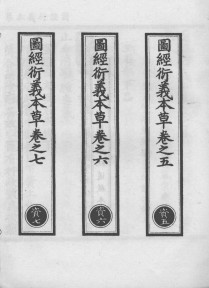 圖經衍義本草卷之五
五
圖經衍義本草卷之六
六
圖經衍義本草卷之七
七